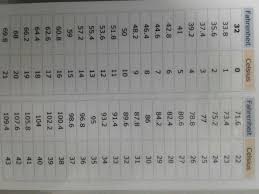 Fahrenheit Celsius Fahrenheit Celsius
32 0 71.6 22
33.8 1 73.4 23
35.6 2 75.2 24
37.4 3 77 25
39.2 4 78.8 26
41 5 80.6 27
42.8 6 82.4 28
44.6 7 84.2 29
46.4 8 86 30
48.2 9 87.8 31
50 10 89.6 32
51.8 11 91.4 33
53.6 12 93.2 34
55.4 13 95 35
57.2 14 96.8 36
59 15 98.6 37
60.8 16 100.4 38
62.6 17 102.2 39
64.4 18 104 40
66.2 19 105.8 41
68 20 107.6 42
69.8 21 109.4 43